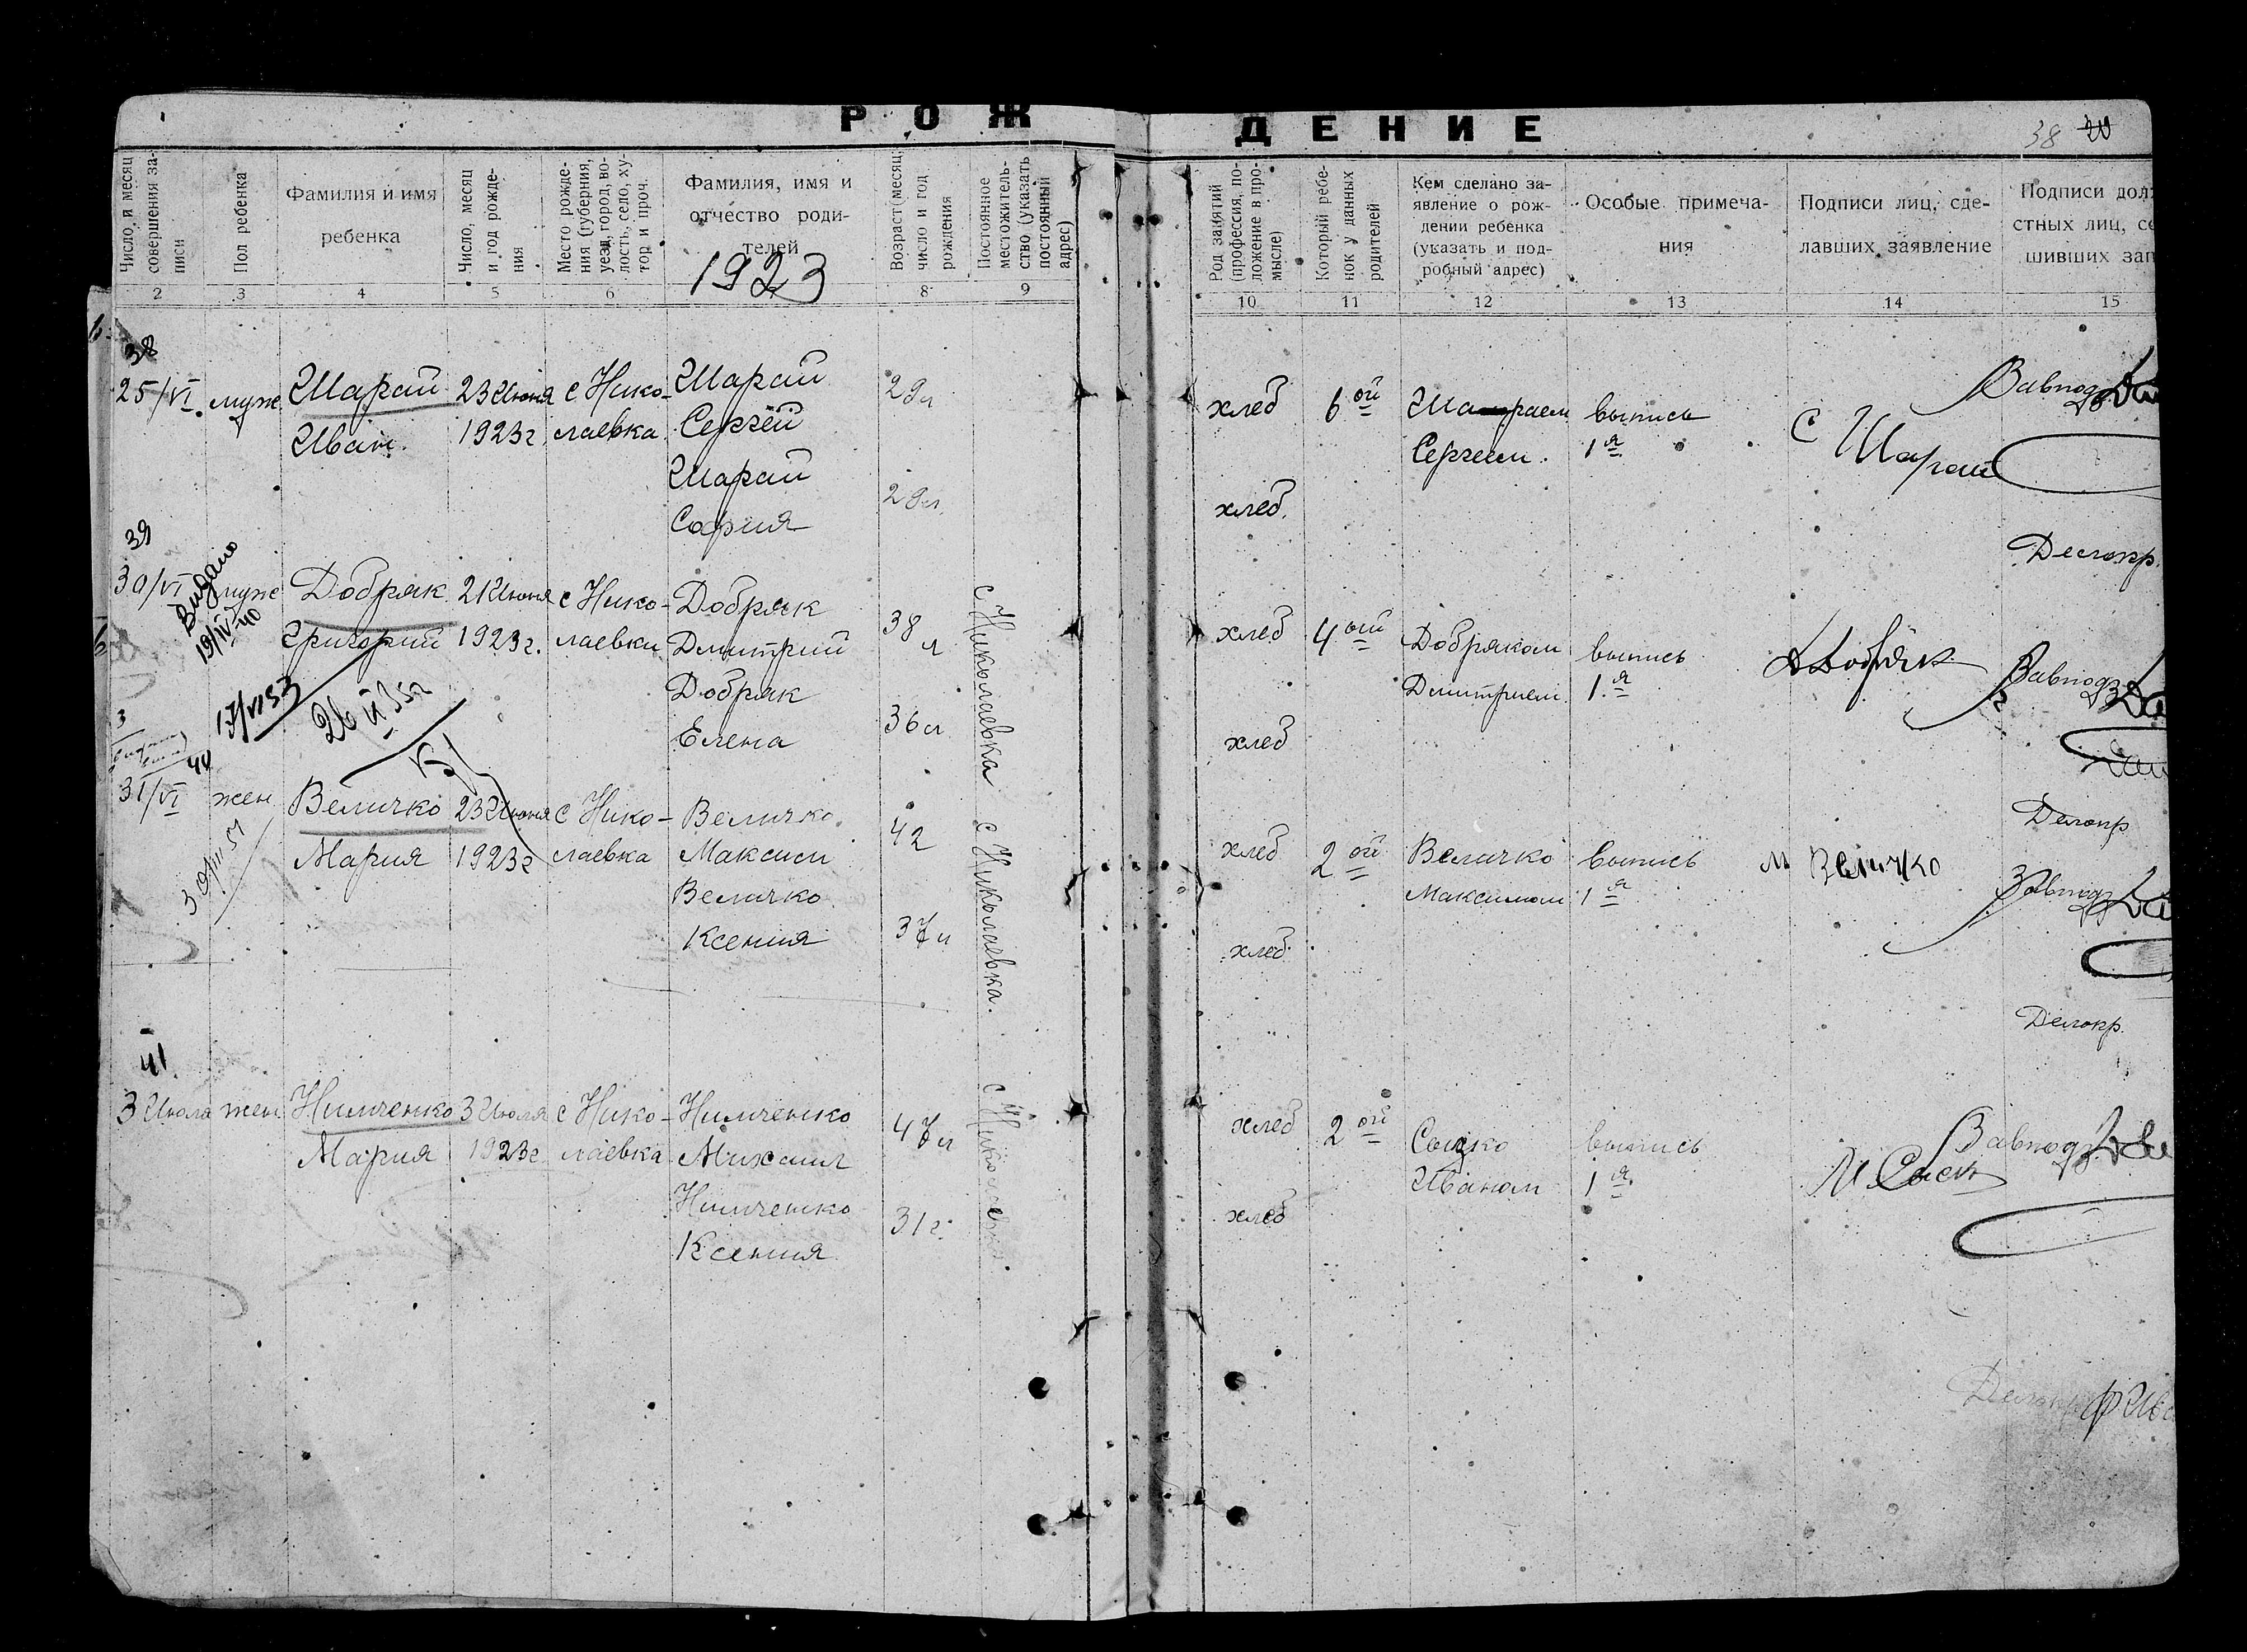 РОЖДЕНИЕ
38 20
Число, и месяц совершения записи
Пол ребенка
Фамилия и имя ребенка
Число, месяц и год рождения
Место рождения (губерния, уезд, город, волость, село, хутор и проч.
Фамилия, имя и отчество родителей
1923
Возраст (месяц, число и год рождения
Постоянное местожительство (указать постоянный адрес)
Род занятий (профессия, положение в промысле)
Который ребенок у данных родителей
Кем сделано заявление о рождении ребенка (указать и подробный адрес)
Особые примечания
Подписи лиц, сделавших заявление
Подписи дол
стных лиц, со
шивших зап
2 3 4 5 6 8 9 10 11 12 13 14 15
38
25/VI муж Шарай 23 Июня с Нико- Шарай 29 л хлеб 6ой Шараем выпись Завпод
Иван. 1923г. лаевка Сергей Сергеем. 1я С Шарай
Шарай 29 л. хлеб.
София
Делопр.
39
Видано
19/IV 40
30/VI муже Добряк 21 Июня с Нико- Добряк 38 л с Николаевка хлеб 4ой Добряком выпись Завпод
Григорий 1923г. лаевки Дмитрий Дмитрием 1.я
Добряк 36 л хлеб
Елена
17/VI 53
26
40
31/VI жен Величко 23 Июня с Нико- Величко 42 с Николаевка. хлеб 2ой Величко выпись М Величко
Мария 1923г лаевка Максим Максимом 1я Завпод
Величко 37 л хлеб
Ксения
Делопр
Делопр.
41.
3 Июла жен Нимченко 3 Июля с Нико- Нимченко 47 л с Николаевка. хлеб 2ой Сыцко выпись Завпод
Мария 1923г лаевка Михаил Иваном 1я.
Нимченко 31 г. хлеб
Ксения
Делопр